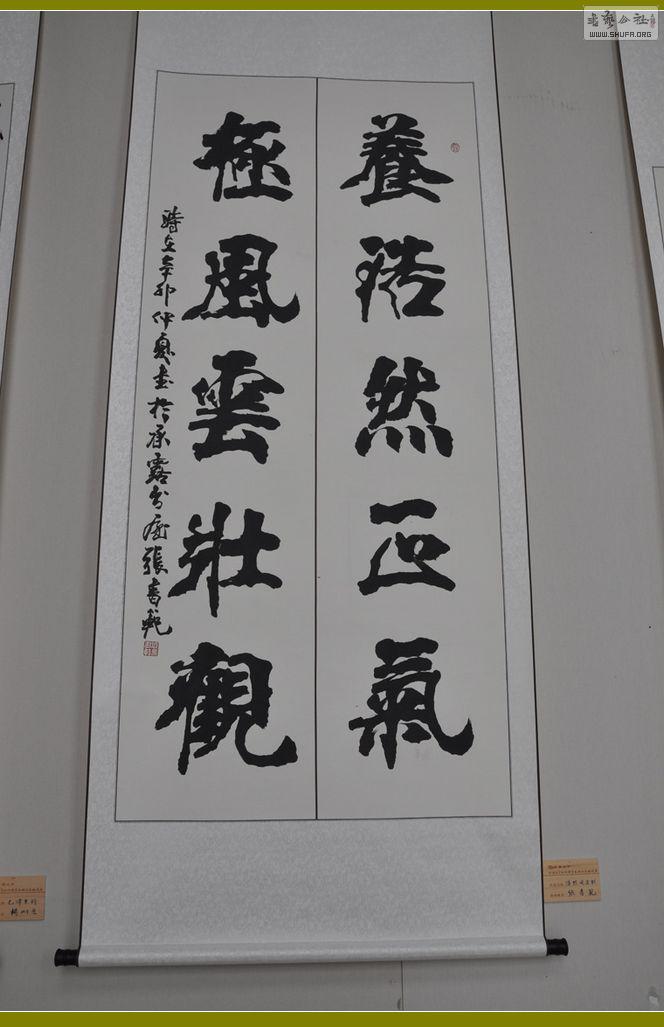 養浩然正氣
極風雲壯觀
時在辛卯仲夏書於承露分庵張書範
WWW.SHUFA.ORG
張書範